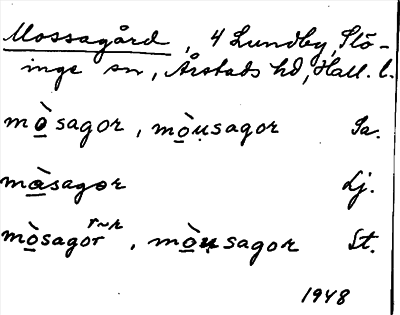 Mossagård, 4 Lundby, Slö-
inge sn, Årstads hd, Hall. l.
mò̲sagor, mò̲u̯sagor Sa.
mà̲sagor Lj.
mò̲sagor r~ʀ, mò̲u̯sagoʀ St.
1948